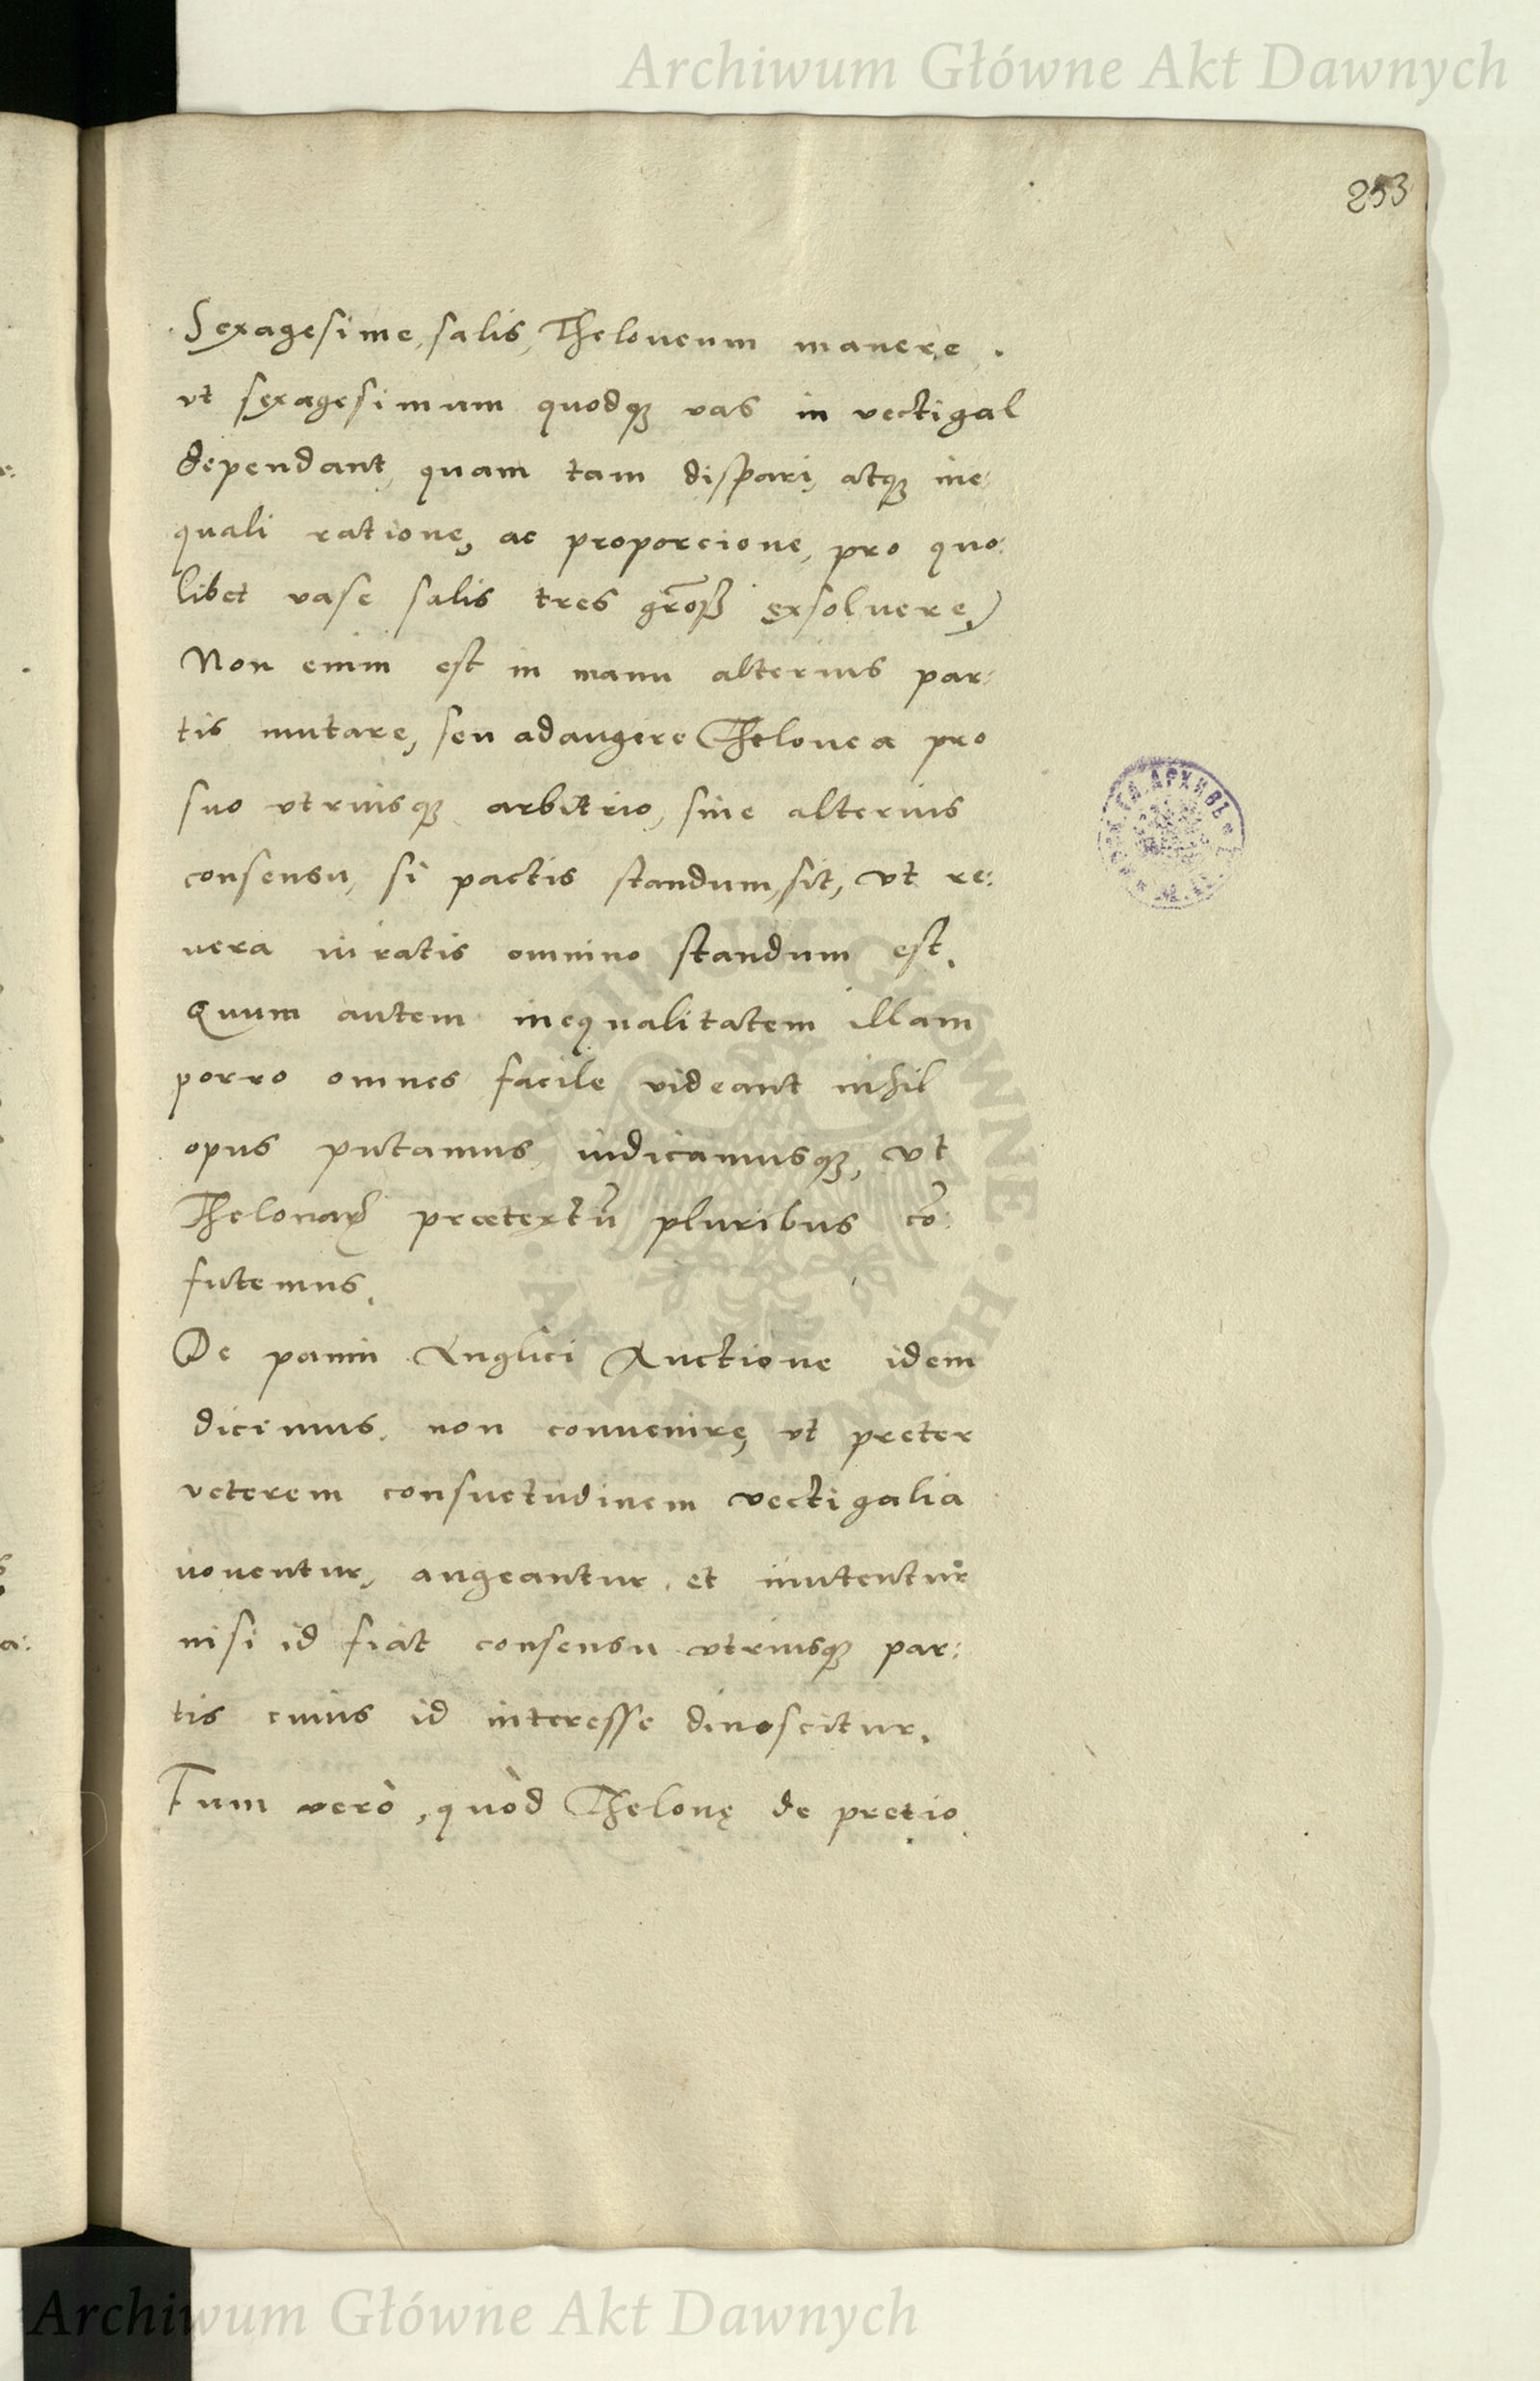 Archiwum Główne Akt Dawnych
253
Sexagesime, salis, Theloneum manere.
vt sexagesimum quodqꝫ vas in vectigal
dependant, quam tam dispari, atqꝫ ine:
quali ratione, ac proporcione, pro quo:
libet vase salis tres groß exsoluere)
Non enim est in manu alterius par:
tis mutare, seu adaugere Thelonea pro
suo vtriusqꝫ arbitrio, sine alterius
consensu, si pactis standum, sit, vt re:
uera iuratis omnino standum est.
Quum autem inequalitatem illam
porro omnes facile videant nihil
opus putamus iudicamusqꝫ, vt
pretextū pluribus cō:
futemus.
De panni Anglici Auctione idem
dicimus. non conuenire, vt preter
veterem consuetudinem vectigalia
nouentur, augeantur, et imutentur
nisi id fiat consensu vtriusqꝫ par:
tis cuius id interesse dinoscitur.
Tum verò, quòd Thelonę de pretio
АРХИВЪ
ARCHIWUM GŁÓWNE
AKT DAWNYCH
Archiwum Główne Akt Dawnych